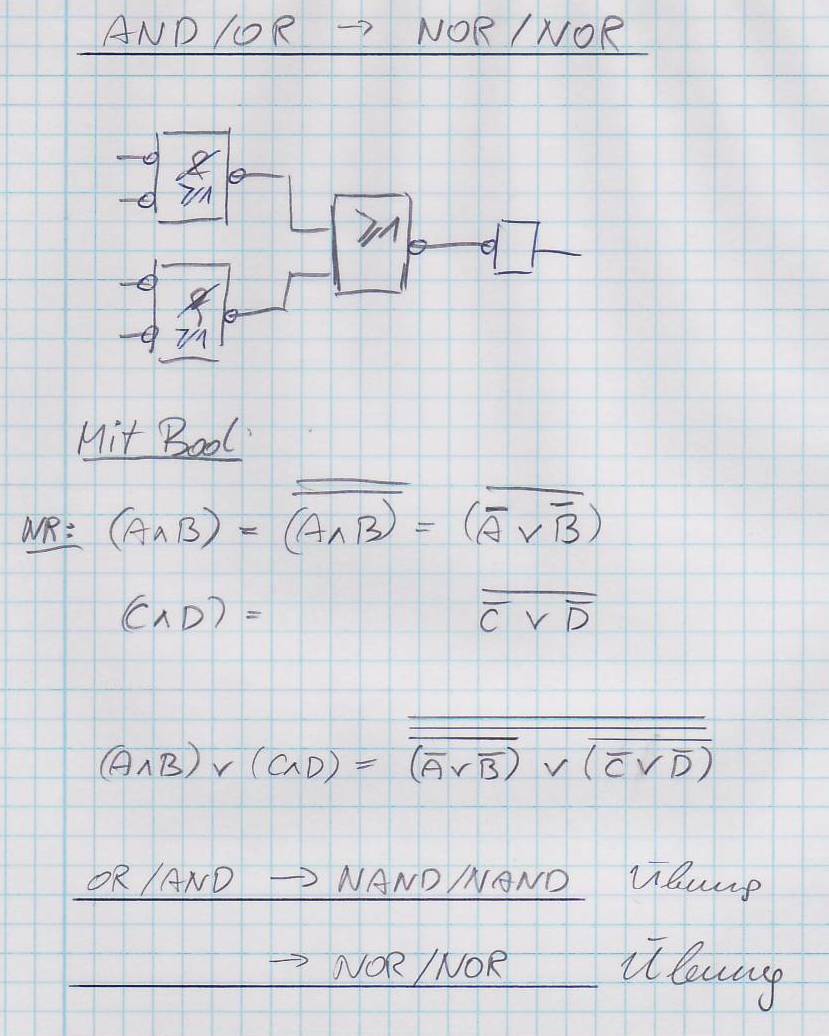 AND/OR → NOR/NOR
&
≥1
≥1
&
≥1
Mit Bool:
NR: (A∧B) = (A̿∧̿B̿) = (A̅ ∨ B̅)̅
(C∧D) = C̅ ∨ D̅
(A∧B) ∨ (C∧D) = (A̅∨B̅) ∨ (C̅∨D̅)
OR/AND → NAND/NAND Übung
→ NOR/NOR Übung